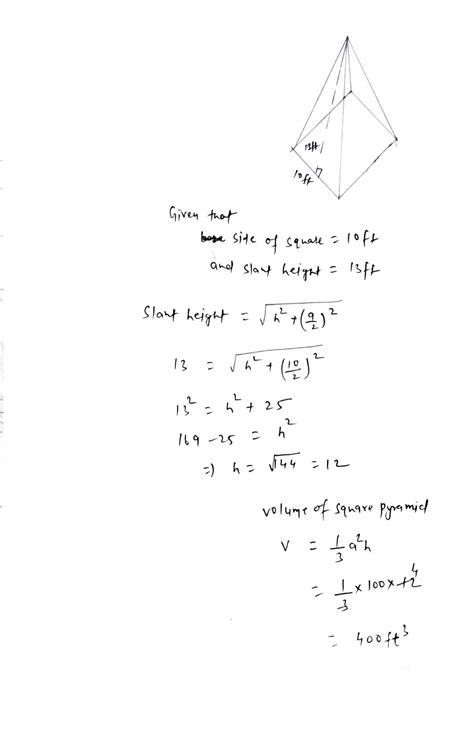 13ft
10ft
Given that
side of square = 10ft
and slant height = 13ft
Slant height = √(h² + (a/2)²)
13 = √(h² + (10/2)²)
13² = h² + 25
169 - 25 = h²
=) h = √144 = 12
volume of square pyramid
V = 1/3 a²h
= 1/3 × 100 × 12 4
= 400ft³